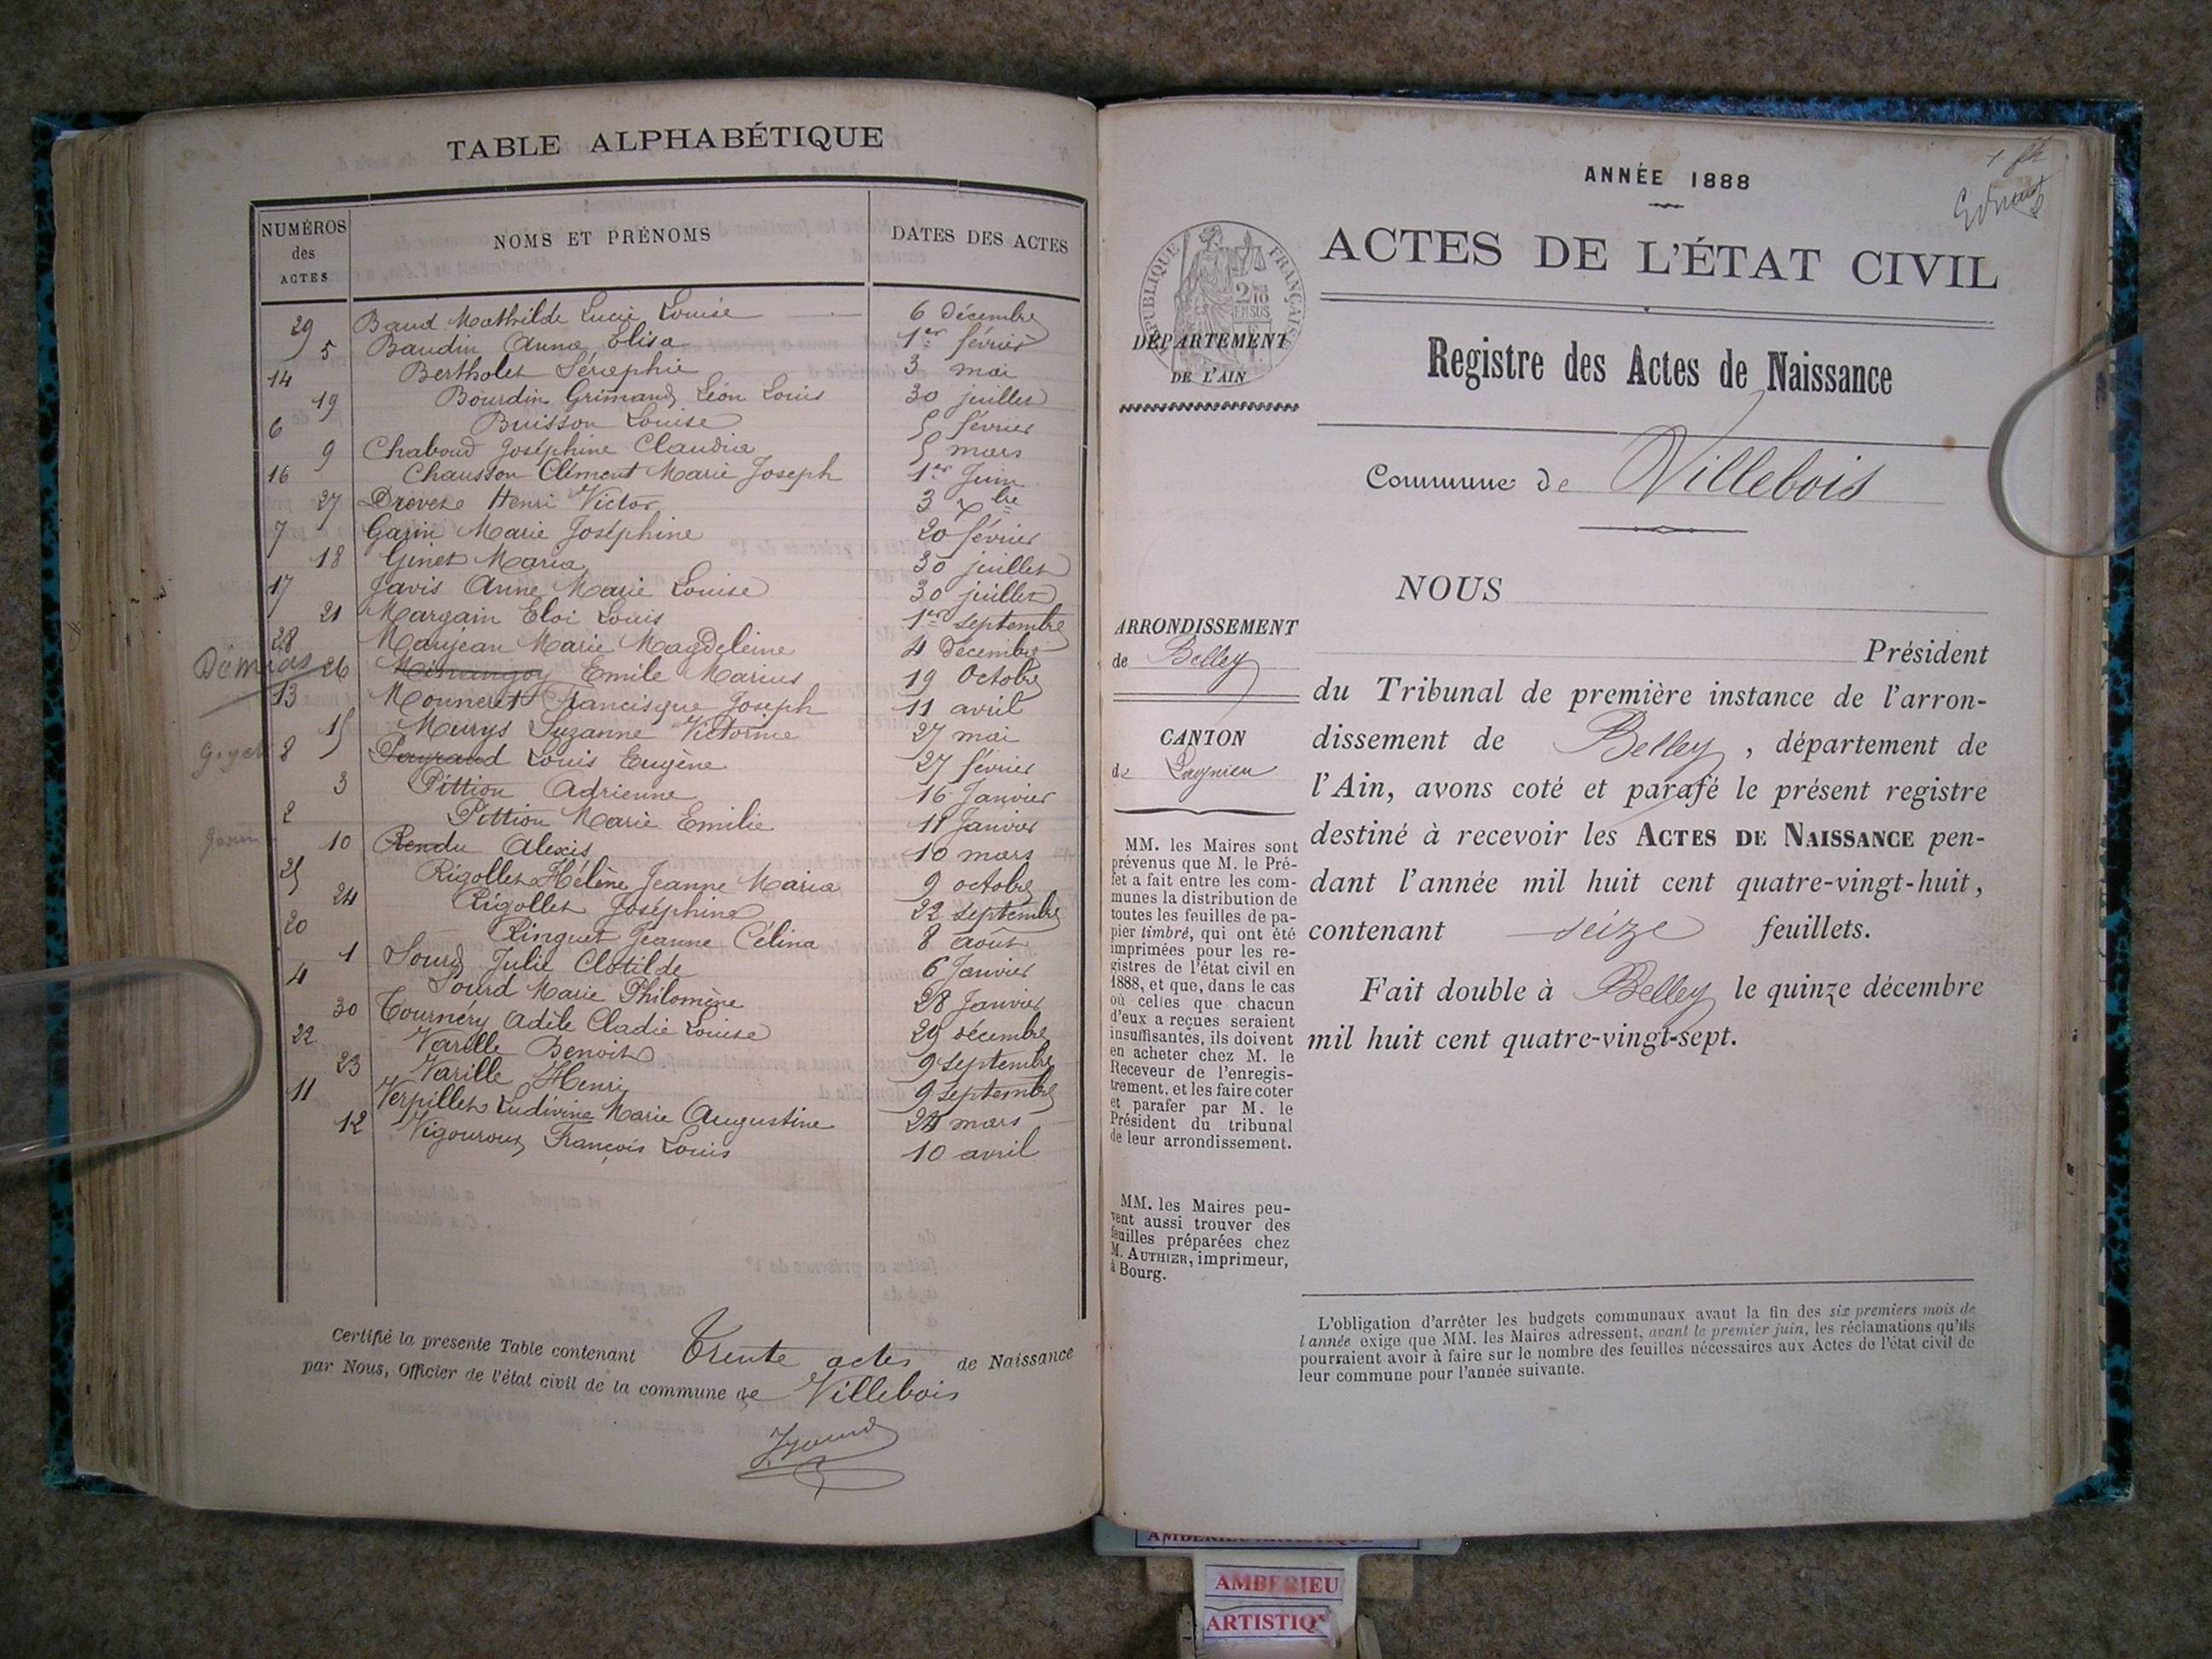 TABLE ALPHABÉTIQUE
NUMÉROS des ACTES | NOMS ET PRÉNOMS | DATES DES ACTES
29 Baud Mathilde Lucie Louise 6 Décembre
5 Baudin Anna Elisa 1er février
14 Bertholet Séraphie 3 mai
19 Bourdin Grimaud Léon Louis 30 juillet
6 Buisson Louise 5 février
9 Chaboud Joséphine Claudia 5 mars
16 Chausson Clément Marie Joseph 1er Juin
27 Drevet Henri Victor 3 Xbre
7 Garin Marie Joséphine 20 février
18 Ginet Maria 30 juillet
17 Javis Anne Marie Louise 30 juillet
21 Margain Eloi Louis 1er septembre
28 Marjean Marie Magdeleine 4 Décembre
26 Emile Marius 19 Octobre
13 Monneret Francisque Joseph 11 avril
15 Meurys Suzanne Victorine 27 mai
8 Peyraud Louis Eugène 27 février
3 Pittion Adrienne 16 Janvier
2 Pittion Marie Emilie 11 Janvier
10 Rendu Alexis 10 mars
25 Rigollet Hélène Jeanne Maria 9 octobre
24 Rigollet Joséphine 22 septembre
20 Ringuet Jeanne Célina 8 août
1 Sourd Julie Clotilde 6 Janvier
4 Sourd Marie Philomène 28 Janvier
30 Tournéry Adèle Cladie Louise 29 décembre
22 Varille Benoit 9 septembre
23 Varille Henri 9 septembre
11 Verpillet Ludivine Marie Augustine 24 mars
12 Vigouroux François Louis 10 avril
Certifié la presente Table contenant Trente actes de Naissance
par Nous, Officier de l'état civil de la commune de Villebois
ANNÉE 1888
ACTES DE L'ÉTAT CIVIL
RÉPUBLIQUE FRANÇAISE
2/10 EN SUS
DÉPARTEMENT
DE L'AIN
Registre des Actes de Naissance
Commune de Villebois
ARRONDISSEMENT
de Belley
CANTON
de Lagnieu
NOUS
Président
du Tribunal de première instance de l'arron-
dissement de Belley, département de
l'Ain, avons coté et parafé le présent registre
destiné à recevoir les ACTES DE NAISSANCE pen-
dant l'année mil huit cent quatre-vingt-huit,
contenant seize feuillets.
Fait double à Belley le quinze décembre
mil huit cent quatre-vingt-sept.
MM. les Maires sont
prévenus que M. le Pré-
fet a fait entre les com-
munes la distribution de
toutes les feuilles de pa-
pier timbré, qui ont été
imprimées pour les re-
gistres de l'état civil en
1888, et que, dans le cas
où celles que chacun
d'eux a reçues seraient
insuffisantes, ils doivent
en acheter chez M. le
Receveur de l'enregis-
trement, et les faire coter
et parafer par M. le
Président du tribunal
de leur arrondissement.
MM. les Maires peu-
vent aussi trouver des
feuilles préparées chez
M. AUTHIER, imprimeur,
à Bourg.
L'obligation d'arrêter les budgets communaux avant la fin des six premiers mois de
l'année exige que MM. les Maires adressent, avant le premier juin, les réclamations qu'ils
pourraient avoir à faire sur le nombre des feuilles nécessaires aux Actes de l'état civil de
leur commune pour l'année suivante.
AMBERIEU ARTISTIQUE
AMBERIEU
ARTISTIQ